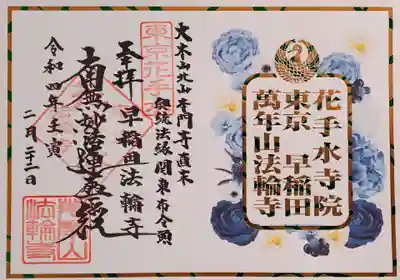 花手水寺院
東京 早稲田
萬年山法輪寺
大本山北山本門寺直末
興統法縁関東布令頭
東京花手水
奉拝 早稲田法輪寺
南無妙法蓮華経
令和四年壬寅
二月二十二日